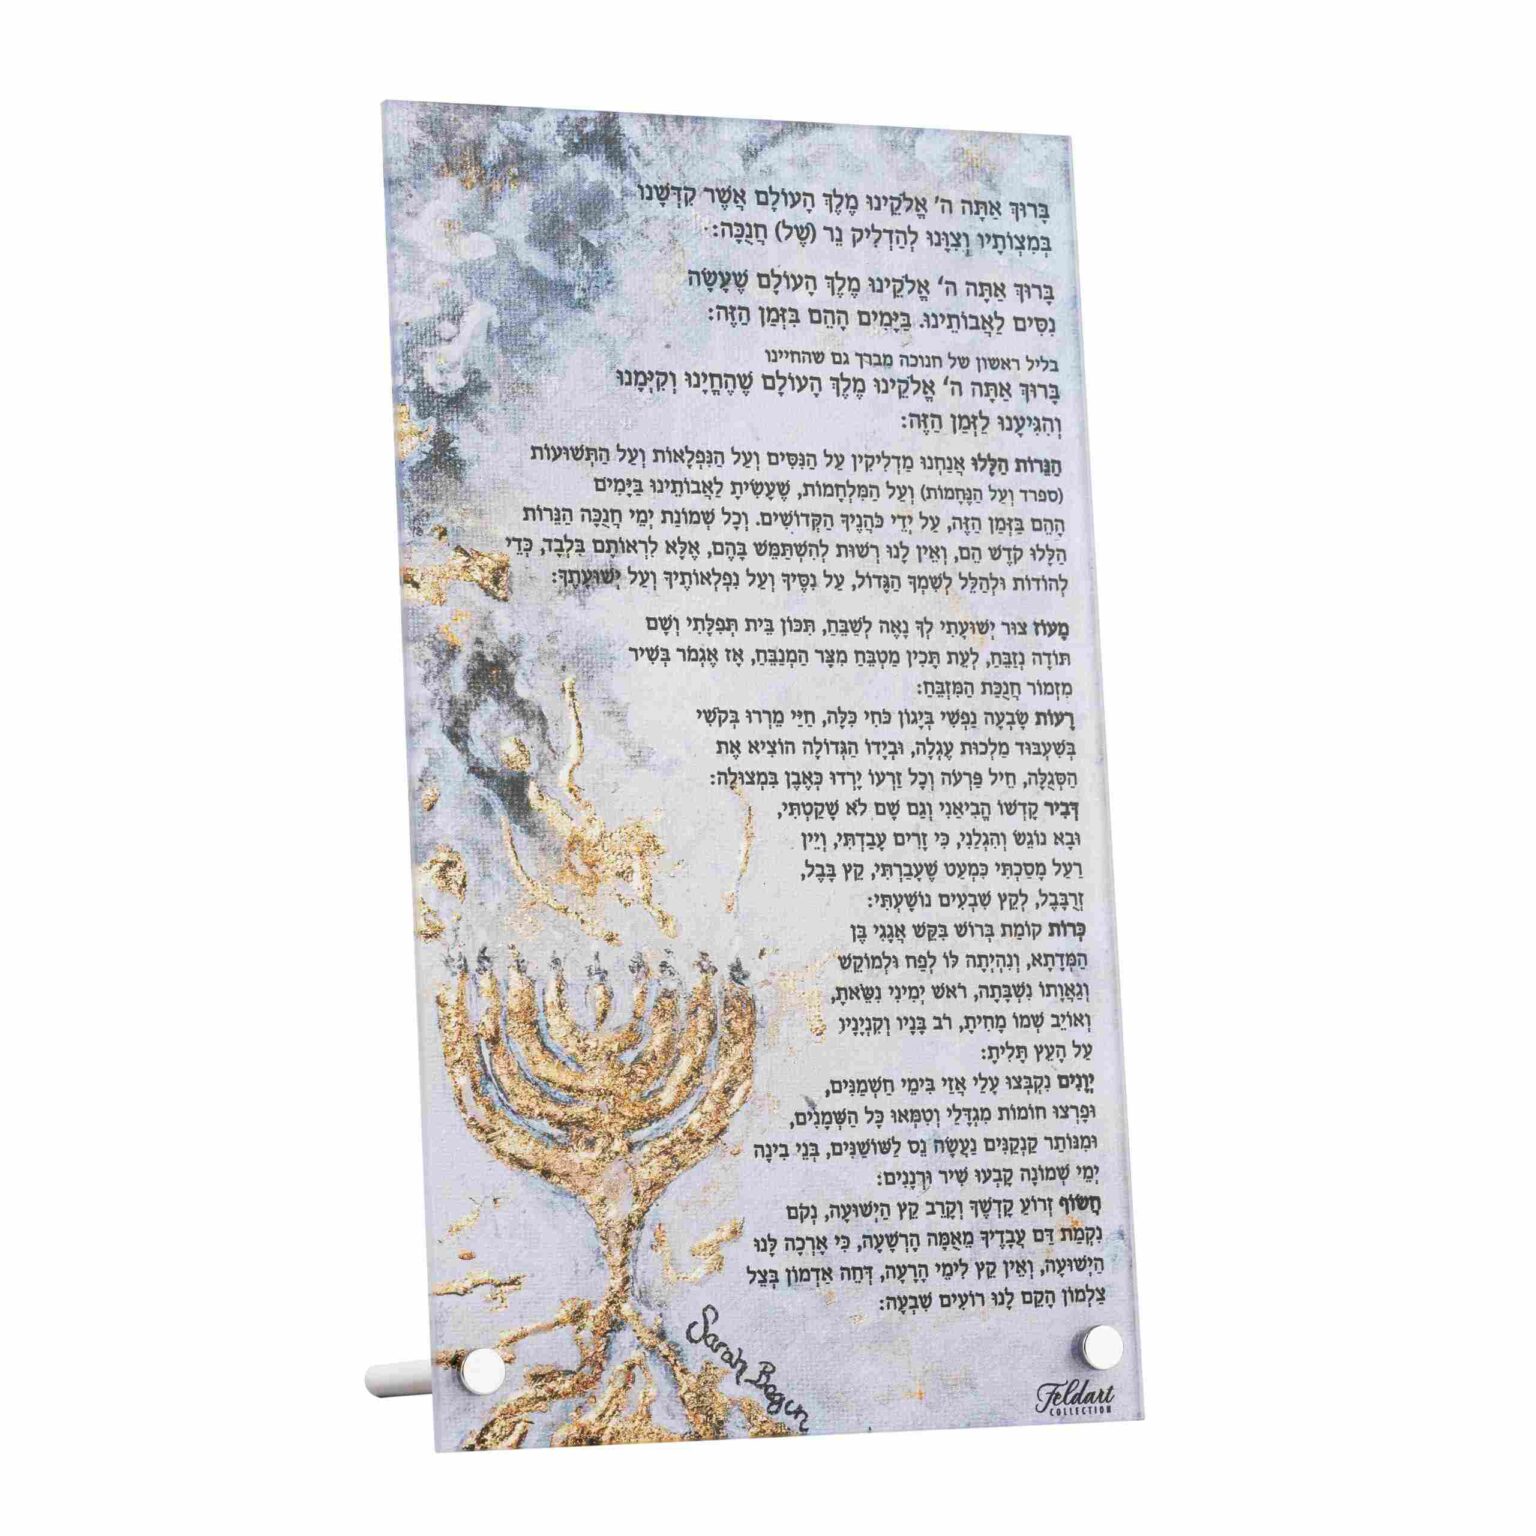 בָּרוּךְ אַתָּה ה' אֱלֹקֵינוּ מֶלֶךְ הָעוֹלָם אֲשֶׁר קִדְּשָׁנוּ
בְּמִצְוֹתָיו וְצִוָּנוּ לְהַדְלִיק נֵר (שֶׁל) חֲנֻכָּה:
בָּרוּךְ אַתָּה ה' אֱלֹקֵינוּ מֶלֶךְ הָעוֹלָם שֶׁעָשָׂה
נִסִּים לַאֲבוֹתֵינוּ. בַּיָּמִים הָהֵם בִּזְּמַן הַזֶּה:
בליל ראשון של חנוכה מברך גם שהחיינו
בָּרוּךְ אַתָּה ה' אֱלֹקֵינוּ מֶלֶךְ הָעוֹלָם שֶׁהֶחֱיָנוּ וְקִיְּמָנוּ
וְהִגִּיעָנוּ לַזְּמַן הַזֶּה:
הַנֵּרוֹת הַלָּלוּ אֲנַחְנוּ מַדְלִיקִין עַל הַנִּסִּים וְעַל הַנִּפְלָאוֹת וְעַל הַתְּשׁוּעוֹת
(ספרד וְעַל הַנֶּחָמוֹת) וְעַל הַמִּלְחָמוֹת, שֶׁעָשִׂיתָ לַאֲבוֹתֵינוּ בַּיָּמִים
הָהֵם בַּזְּמַן הַזֶּה, עַל יְדֵי כֹּהֲנֶיךָ הַקְּדוֹשִׁים. וְכָל שְׁמוֹנַת יְמֵי חֲנֻכָּה הַנֵּרוֹת
הַלָּלוּ קֹדֶשׁ הֵם, וְאֵין לָנוּ רְשׁוּת לְהִשְׁתַּמֵּשׁ בָּהֶם, אֶלָּא לִרְאוֹתָם בִּלְבָד, כְּדֵי
לְהוֹדוֹת וּלְהַלֵּל לְשִׁמְךָ הַגָּדוֹל, עַל נִסֶּיךָ וְעַל נִפְלְאוֹתֶיךָ וְעַל יְשׁוּעָתֶךָ:
מָעוֹז צוּר יְשׁוּעָתִי לְךָ נָאֶה לְשַׁבֵּחַ, תִּכּוֹן בֵּית תְּפִלָּתִי וְשָׁם
תּוֹדָה נְזַבֵּחַ, לְעֵת תָּכִין מַטְבֵּחַ מִצָּר הַמְנַבֵּחַ, אָז אֶגְמֹר בְּשִׁיר
מִזְמוֹר חֲנֻכַּת הַמִּזְבֵּחַ:
רָעוֹת שָׂבְעָה נַפְשִׁי בְּיָגוֹן כֹּחִי כִּלָּה, חַיַּי מֵרְרוּ בְּקֹשִׁי
בְּשִׁעְבּוּד מַלְכוּת עֶגְלָה, וּבְיָדוֹ הַגְּדוֹלָה הוֹצִיא אֶת
הַסְּגֻלָּה, חֵיל פַּרְעֹה וְכָל זַרְעוֹ יָרְדוּ כְּאֶבֶן בִּמְצוּלָה:
דְּבִיר קָדְשׁוֹ הֱבִיאַנִי וְגַם שָׁם לֹא שָׁקַטְתִּי,
וּבָא נוֹגֵשׂ וְהִגְלַנִי, כִּי זָרִים עָבַדְתִּי, וְיֵין
רַעַל מָסַכְתִּי כִּמְעַט שֶׁעָבַרְתִּי, קֵץ בָּבֶל,
זְרֻבָּבֶל, לְקֵץ שִׁבְעִים נוֹשַׁעְתִּי:
כְּרוֹת קוֹמַת בְּרוֹשׁ בִּקֵּשׁ אֲגָגִי בֶּן
הַמְּדָתָא, וְנִהְיְתָה לּוֹ לְפַח וּלְמוֹקֵשׁ
וְגַאֲוָתוֹ נִשְׁבָּתָה, רֹאשׁ יְמִינִי נִשֵּׂאתָ,
וְאוֹיֵב שְׁמוֹ מָחִיתָ, רֹב בָּנָיו וְקִנְיָנָיו
עַל הָעֵץ תָּלִיתָ:
יְוָנִים נִקְבְּצוּ עָלַי אֲזַי בִּימֵי חַשְׁמַנִּים,
וּפָרְצוּ חוֹמוֹת מִגְדָּלַי וְטִמְּאוּ כָּל הַשְּׁמָנִים,
וּמִנּוֹתַר קַנְקַנִּים נַעֲשָׂה נֵס לַשּׁוֹשַׁנִּים, בְּנֵי בִינָה
יְמֵי שְׁמוֹנָה קָבְעוּ שִׁיר וּרְנָנִים:
חֲשׂוֹף זְרוֹעַ קָדְשֶׁךָ וְקָרֵב קֵץ הַיְשׁוּעָה, נְקֹם
נִקְמַת דַּם עֲבָדֶיךָ מֵאֻמָּה הָרְשָׁעָה, כִּי אָרְכָה לָּנוּ
הַיְשׁוּעָה, וְאֵין קֵץ לִימֵי הָרָעָה, דְּחֵה אַדְמוֹן בְּצֵל
צַלְמוֹן הָקֵם לָנוּ רוֹעִים שִׁבְעָה:
Sarah Begun
Feldart
COLLECTION